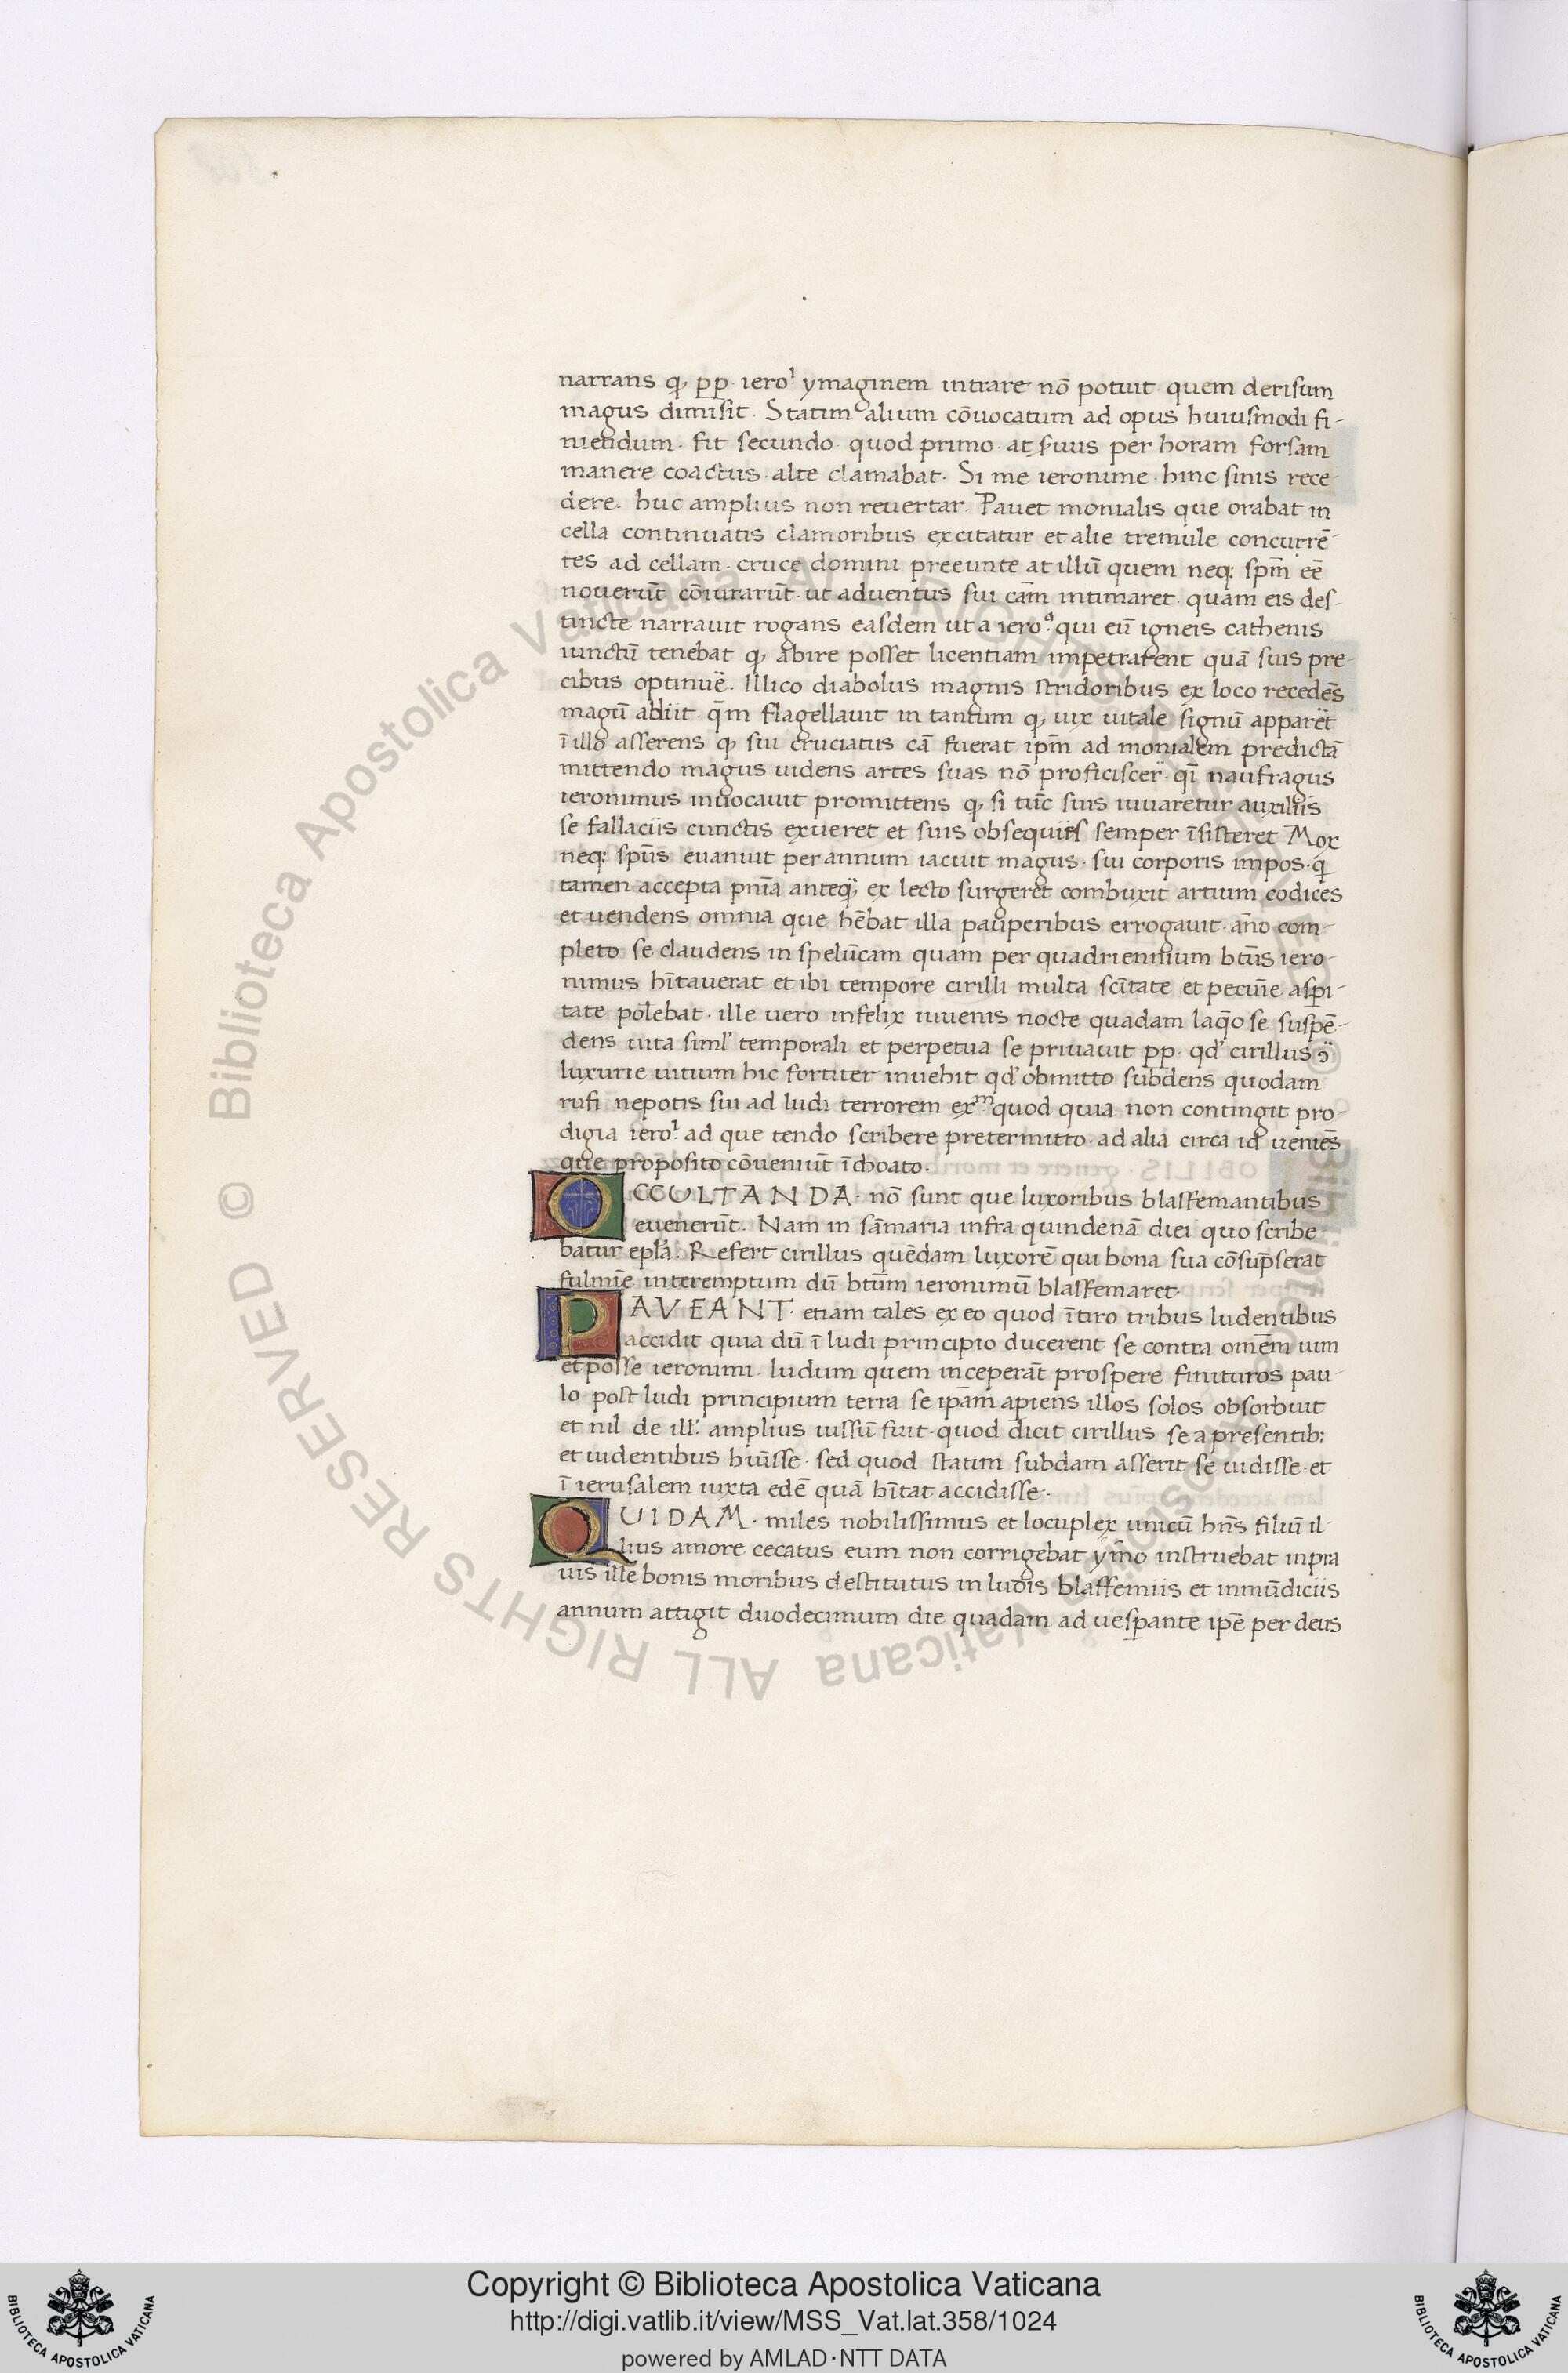 narrans qͥ pp. iero.ͥ ymaginem intrare nō potuit. quem derisum
magus dimisit. Statim alium cōuocatum ad opus huiusmodi fi-
niendum. fit secundo quod primo. at seuus per horam forsam
manere coactus. alte clamabat. Si me ieronime. hinc sinis rece-
dere. huc amplius non reuertar. Pauet monialis que orabat in
cella continuatis clamoribus excitatur et alie tremule concurrē-
tes ad cellam. cruce domini preeunte at illū quem neq; spm̄ eē
nouerūt cōiurarūt. ut aduentus sui cām intimaret. quam eis des-
tincte narrauit rogans easdem ut a iero.º qui eū igneis cathenis
iunctū tenebat q, abire posset licentiam impetrarent quā suis pre-
cibus optinuē. Illico diabolus magnis stridoribus ex loco recedēs
magū abiit. qm̄ flagellauit in tantum q, uix uitale signū apparēt
ī illo asserens q, sui cruciatus cā fuerat ipm̄ ad monialem predictā
mittendo magus uidens artes suas nō proficiscer. qi naufragus
ieronimus inuocauit promittens q, si tūc suis iuuaretur auxiliis
se fallaciis cunctis exueret et suis obsequiis semper īsisteret Mox
neq; spūs euanuit per annum iacuit magus. sui corporis impos. q
tamen accepta pnīa anteq; ex lecto surgeret combuxit artium codices
et uendens omnia que hēbat illa pauperibus errogauit. āno com-
pleto se claudens in spelūcam quam per quadriennium btūs iero-
nimus hītauerat. et ibi tempore cirilli multa scītate et pecūie aspi-
tate polebat. ille uero infelix iuuenis nocte quadam laq̄o se suspē-
dens uita siml' temporali et perpetua se priuauit pp. qd' cirillus ɔ̈
luxurie uitium hic fortiter inuehit qd' obmitto subdens quodam
rufi nepotis sui ad ludi terrorem exᵐ quod quia non contingit pro-
digia iero.ͥ ad que tendo scribere pretermitto. ad alia circa id ueniēs
que proposito cōueniūt īchoato.
OCCULTANDA. nō sunt que luxoribus blasfemantibus
euenerūt. Nam in sāmaria infra quindenā diei quo scribe
batur epla. Refert cirillus quēdam luxorē qui bona sua cōsūpserat
fulmīe interemptum dū btūm ieronimū blasfemaret.
PAVEANT. etiam tales ex eo quod ītiro tribus ludentibus
accidit quia dū ī ludi principio ducerent se contra omēm uim
et posse ieronimi. ludum quem inceperāt prospere finituros pau-
lo post ludi principium terra se ipām apiens illos solos obsorbuit
et nil de ill'. amplius uissū fuit. quod dicit cirillus se a presentib;
et uidentibus hūisse. sed quod statim subdam asserit se uidisse. et
ī ierusalem iuxta edē quā hītat accidisse.
QUIDAM. miles nobilissimus et locuplex unicū hns̄ filiū il-
lius amore cecatus eum non corrigebat ymō instruebat inpra
uis ille bonis moribus destitutus in ludis blasfemiis et inmūdiciis
annum attigit duodecimum die quadam aduespante ipē per deus
Copyright © Biblioteca Apostolica Vaticana
http://digi.vatlib.it/view/MSS_Vat.lat.358/1024
powered by AMLAD·NTT DATA
BIBLIOTECA APOSTOLICA VATICANA
BIBLIOTECA APOSTOLICA VATICANA
© Biblioteca Apostolica Vaticana ALL RIGHTS RESERVED